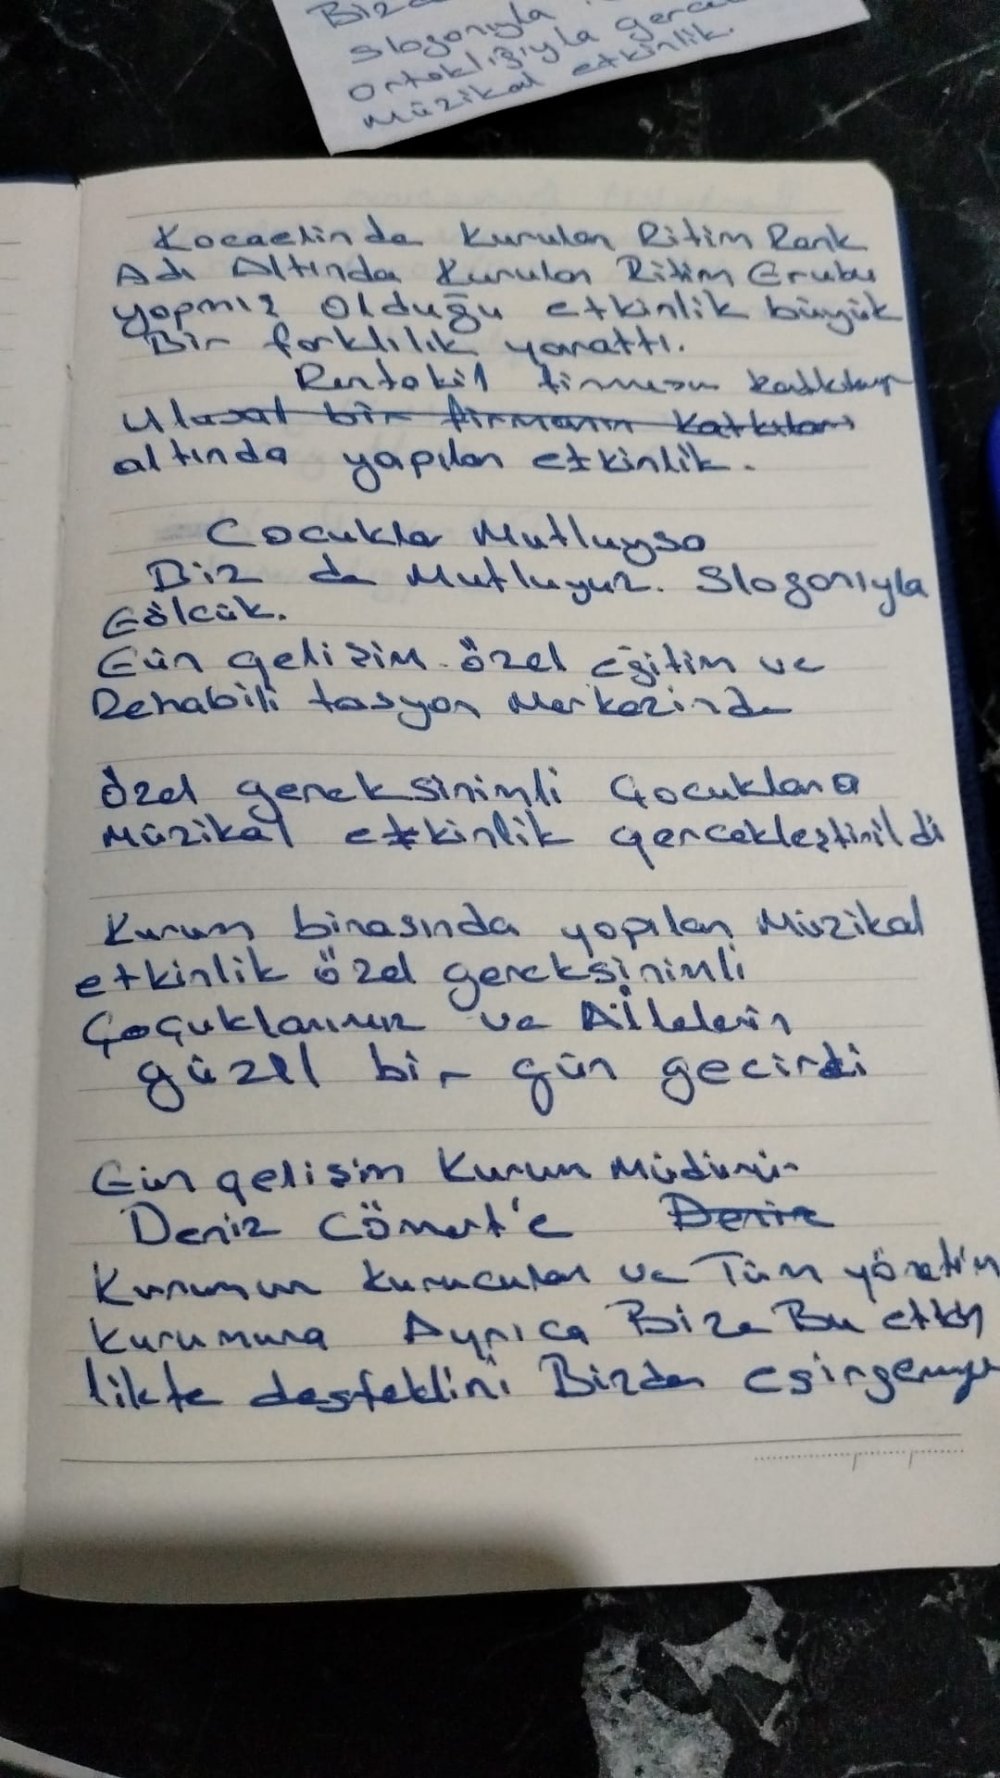 Biz
Sloganıyla
Ortaklığıyla gerçe
Müzikal etkinlik.
Kocaelinde Kurulan Ritim Renk
Adı Altında Kurulan Ritim Grubu
yapmış Olduğu etkinlik büyük
Bir farklılık yarattı.
Rentokil firması katkıları
Ulusal bir firmanın Katkıları
altında yapılan etkinlik.
Cocuklar Mutluysa
Biz de Mutluyuz. Sloganıyla
Gölcük.
Gün gelişim özel eğitim ve
Rehabili tasyon Merkezinde
özel gereksinimli Çocuklara
Müzikal etkinlik gerçekleştirildi
Kurum binasında yapılan Müzikal
etkinlik özel gereksinimli
Çoçuklarımız ve Aİlelerin
güzel bir gün gecirdi
Gün gelişim Kurum Müdürü
Deniz Cömert'e Deniz
Kurumun kurucuları ve Tüm yönetim
kurumuna Ayrıca Bize Bu etkin
likte desteklini Bizden esirgemeye